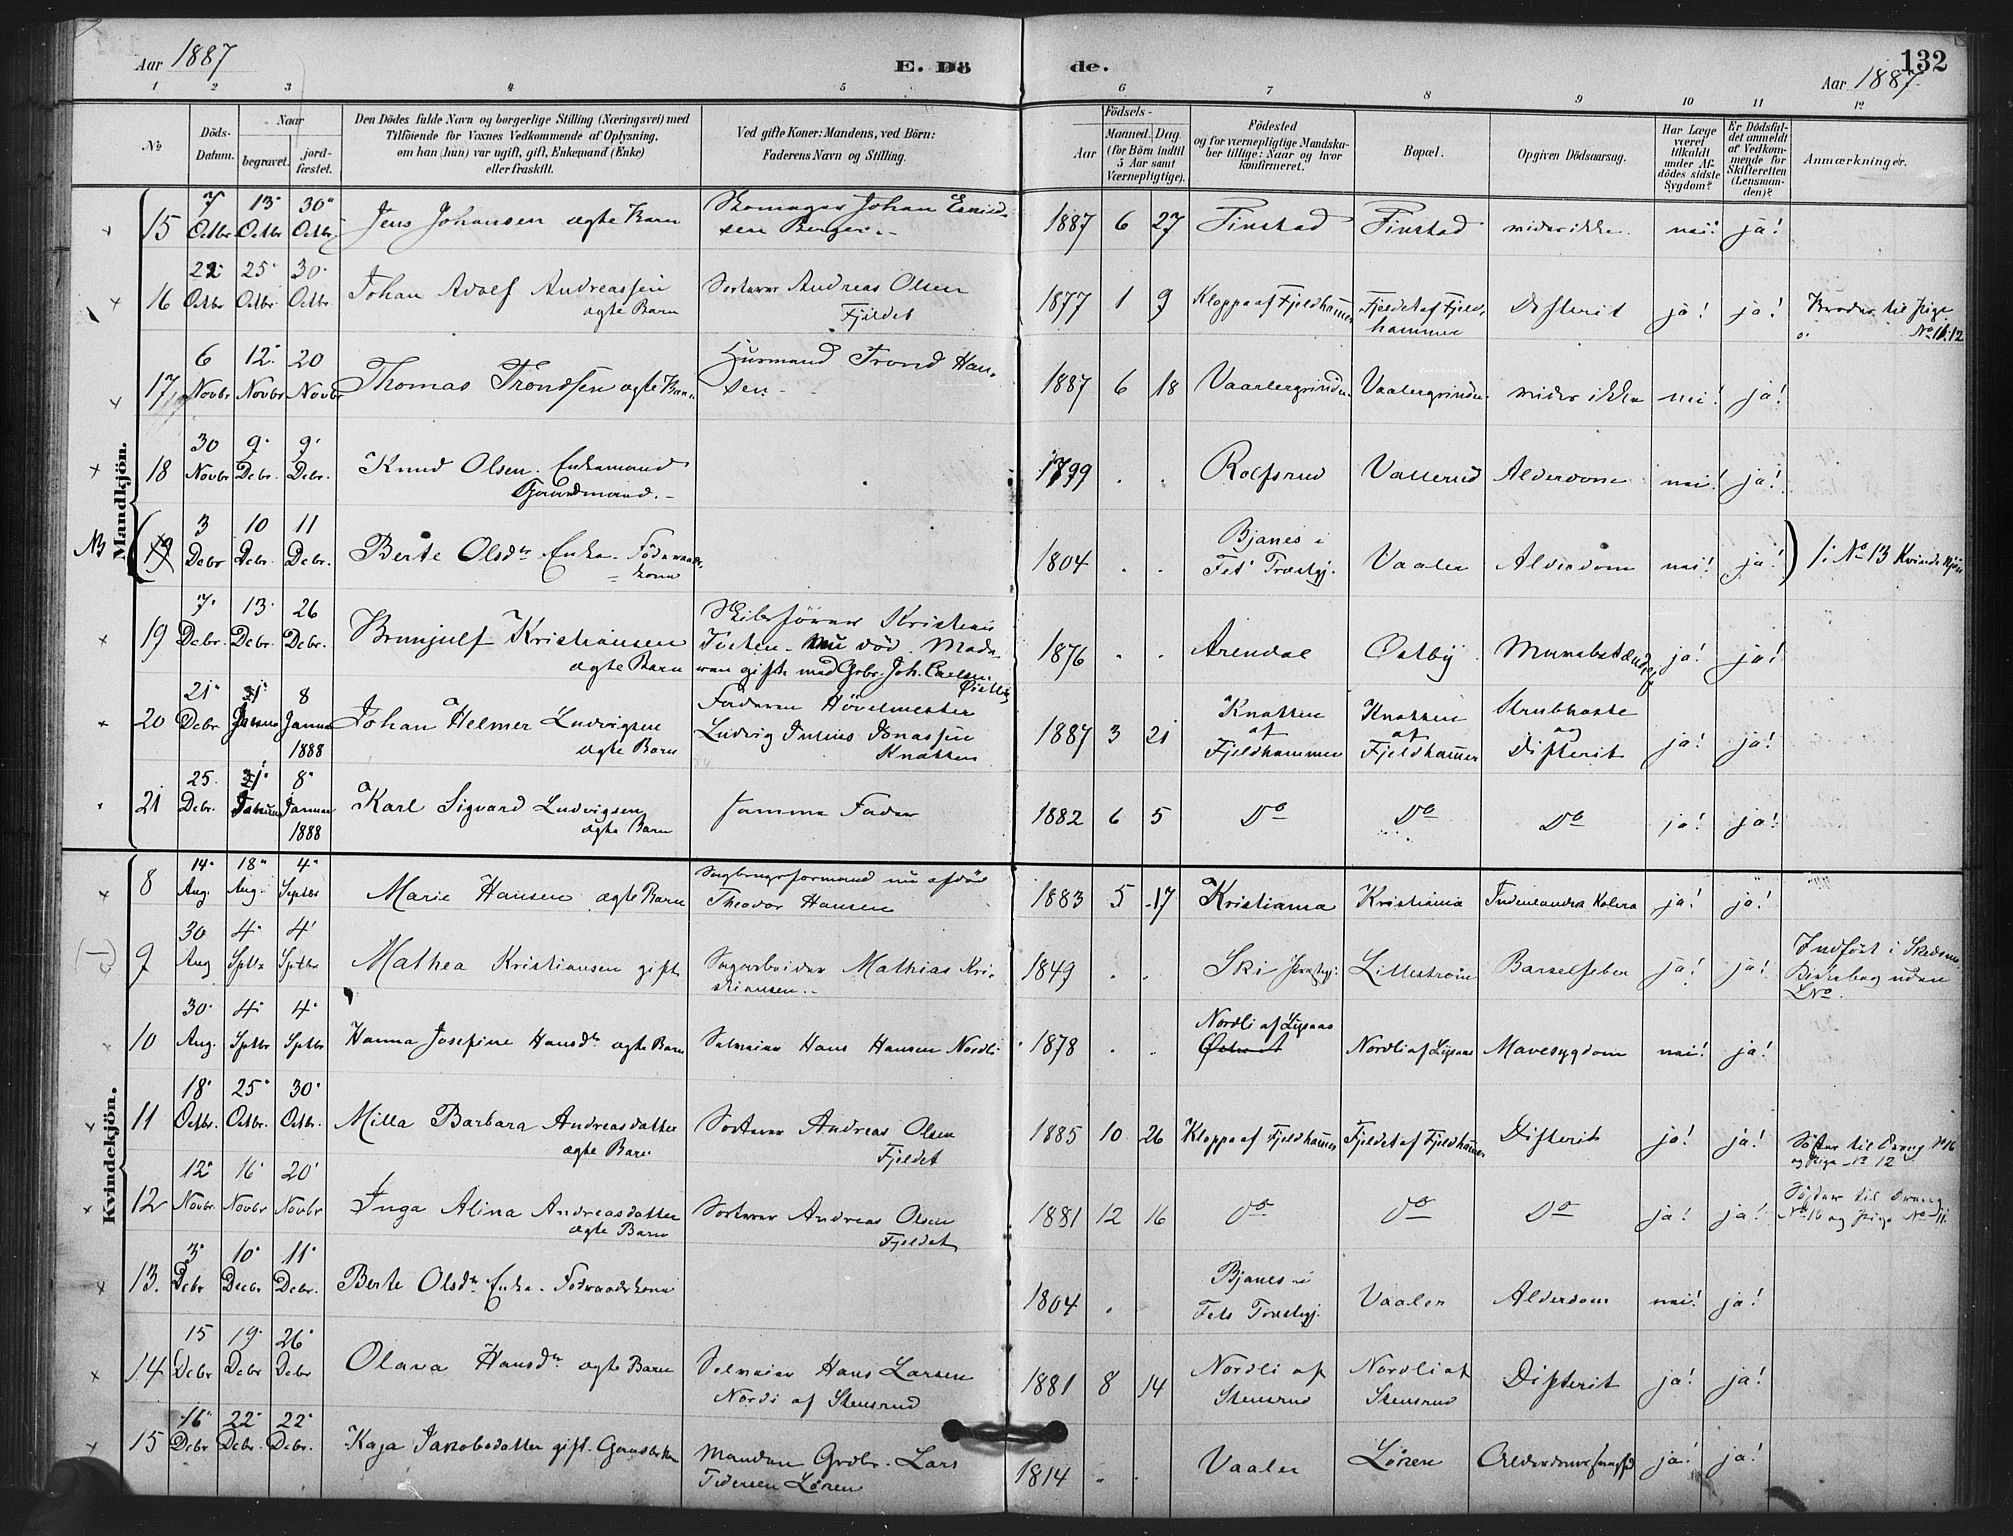 Aar 1887
E. Dö
de.
132
Aar 1887
1 2 3 4 5 6 7 8 9 10 11 12
No
Döds-
Datum.
Naar
begravet.
jord-
fæstet.
Den Dödes fulde Navn og borgerlige Stilling (Næringsvei) med
Tilföiende for Voxnes Vedkommende af Oplysning,
om han (hun) var ugift, gift, Enkemand (Enke)
eller fraskilt.
Ved gifte Koner: Mandens, ved Börn:
Faderens Navn og Stilling.
Aar
Födsels-
Maaned. Dag.
(for Börn indtil
5 Aar samt
Værnepligtige).
Födested
og for værnepligtige Mandska-
ber tillige: Naar og hvor
konfirmeret.
Bopæl.
Opgiven Dödsaarsag.
Har Læge
været
tilkaldt
under Af-
dödes sidste
Sygdom?
Er Dödsfal-
det anmeldt
af Vedkom-
mende for
Skifteretten
(Lensman-
den)?
Anmærkninger.
Mandkjön.
15 7 Octbr. 13 Octbr. 30 Octbr. Jens Johansen ægte Barn Skomager Johan
sen Berger 1887 6 27 Finstad Finstad vides ikke nei! ja!
16 22 Octbr. 25 Octbr. 30 Octbr. Johan Adolf Andreassen
ægte Barn Sorterer Andreas Olsen
Fjeldet 1877 1 9 Kloppa af Fjeldhamer Fjeldet af Fjeld-
hammer Difterit ja! ja! Broder til Pige
No 11. 12
17 6 Novbr 12 Novbr 20 Novbr Thomas Trondsen ægte Barn Husmand Trond Han-
sen 1887 6 18 Vaalergrinden Vaalergrinden vides ikke nei! ja!
18 30 Novbr 9 Debr. 9 Debr. Knud Olsen. Enkemand
Gaardmand. 1799 . . Rolfsrud Vallerud Alderdom nei! ja!
NB (19 3 Debr 10 Debr. 11 Debr. Berte Olsdtr Enke. Föderaads-
kone 1804 . . Bjanes i
Fet Præstgj. Vaaler Alderdom nei! ja! ) No 13 Kvindekjön
19 7 Debr. 13 Debr. 26 Debr. Brynjulf Kristiansen
ægte Barn Skibsförer Kristian
nu död. Mode-
ren gift med Grbr. Joh.
1876 . . Arendal Ostby ja! ja!
20 21 Debr 31 8 Januar
1888 Johan Helmer Ludvigsen
ægte Barn Faderen Hövelmester
Ludvig Julius Jonassen
Knatten 1887 3 21 Knatten
af
Fjeldhammer Knatten
af
Fjeldhamer Strubhoste
og
Difterit ja! ja!
21 25 Debr. 31 8 Januar
1888 Karl Sigvard Ludvigsen
ægte Barn Samme Fader 1882 6 5 Do Do Do ja! ja!
Kvindekjön.
8 14 Aug. 18 Aug. 4 Septbr Marie Hansen ægte Barn Sagbrugsformand nu afdöd
Theodor Hansen 1883 5 17 Kristiania Kristiania Indenlandsk Kolera ja! ja!
9 30 Aug 4 Sptbr 4 Sptbr Mathea Kristiansen gift Sagarbeider Mathias Kri-
stiansen 1849 . . Ski Præstgj. Lilleström Barselfeber ja! ja! Indfört i Skedsmo
uden
LNo.
10 30 Aug. 4 Sptbr 4 Sptbr Hanna Josefine Hansdtr ægte Barn Selveier Hans Hansen Nordli 1878 . . Nordli af Ligsaas
Nordli af Ligsaas Mavesygdom nei! ja!
11 18 Octbr. 25 Octbr. 30 Octbr. Milla Barbara Andreasdatter
ægte Barn Sorterer Andreas Olsen
Fjeldet 1885 10 26 Kloppa af Fjeldhamer Fjeldet af Fjeldhamer Difterit ja! ja! Söster til Dreng No 16
og Pige No 12
12 12 Novbr 16 Novbr 20 Novbr Inga Alina Andreasdatter
ægte Barn Sorterer Andreas Olsen
Fjeldet 1881 12 16 Do Do Do ja! ja! Söster til Dreng
No 16 og Pige No 11.
13. 3 Debr 10 Decbr 11 Debr. Berte Olsdtr Enke. Föderaadskone 1804 . Bjanes i
Fets Præstegj. Vaaler Alderdom nei! ja!
14 15 Debr 19 Debr 26 Debr Olava Hansdtr ægte Barn Selveier Hans Larsen
Nordli af Stensrud 1881 8 14 Nordli af
Stensrud Nordli af
Stensrud Difterit ja! ja!
15 16 Debr 22 Debr. 22 Debr. Kaja Jakobsdatter gift. Manden Grdbr. Lars
Pedersen Lören 1814 . . Vaaler Lören Alderdomssvaghed ja! ja!